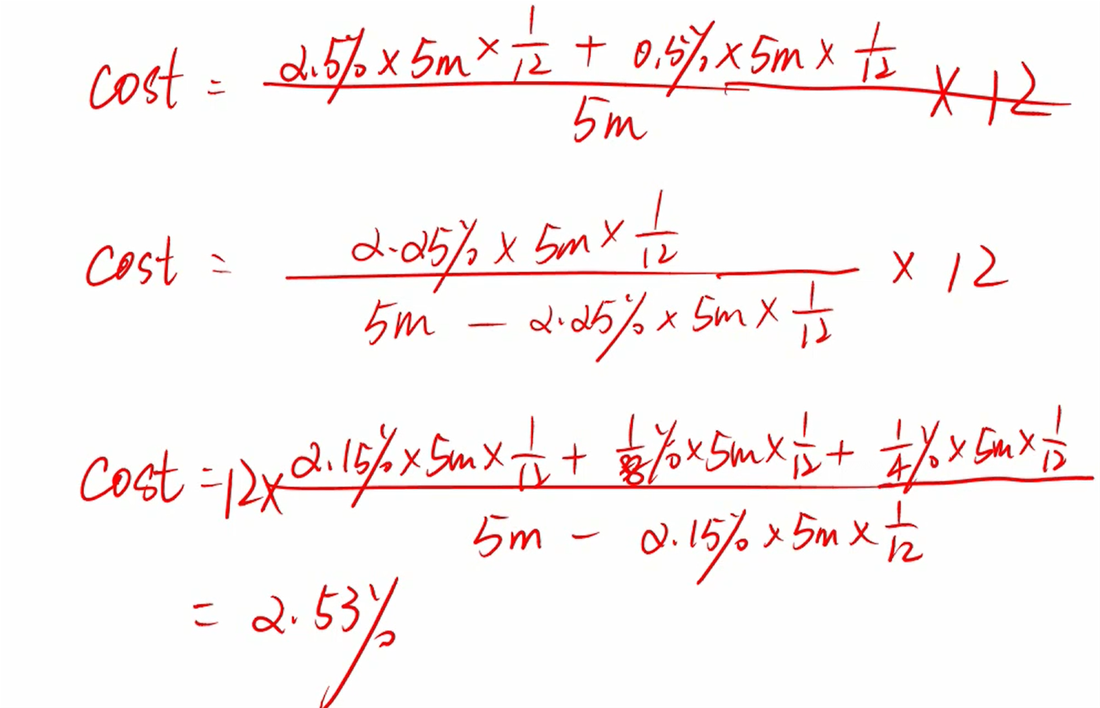 cost = (2.5% × 5m × 1/12 + 0.5% × 5m × 1/12) / 5m × 12
cost = (2.25% × 5m × 1/12) / (5m − 2.25% × 5m × 1/12) × 12
cost = 12 × (2.15% × 5m × 1/12 + 1/8% × 5m × 1/12 + 1/4% × 5m × 1/12) / (5m − 2.15% × 5m × 1/12)
= 2.53%